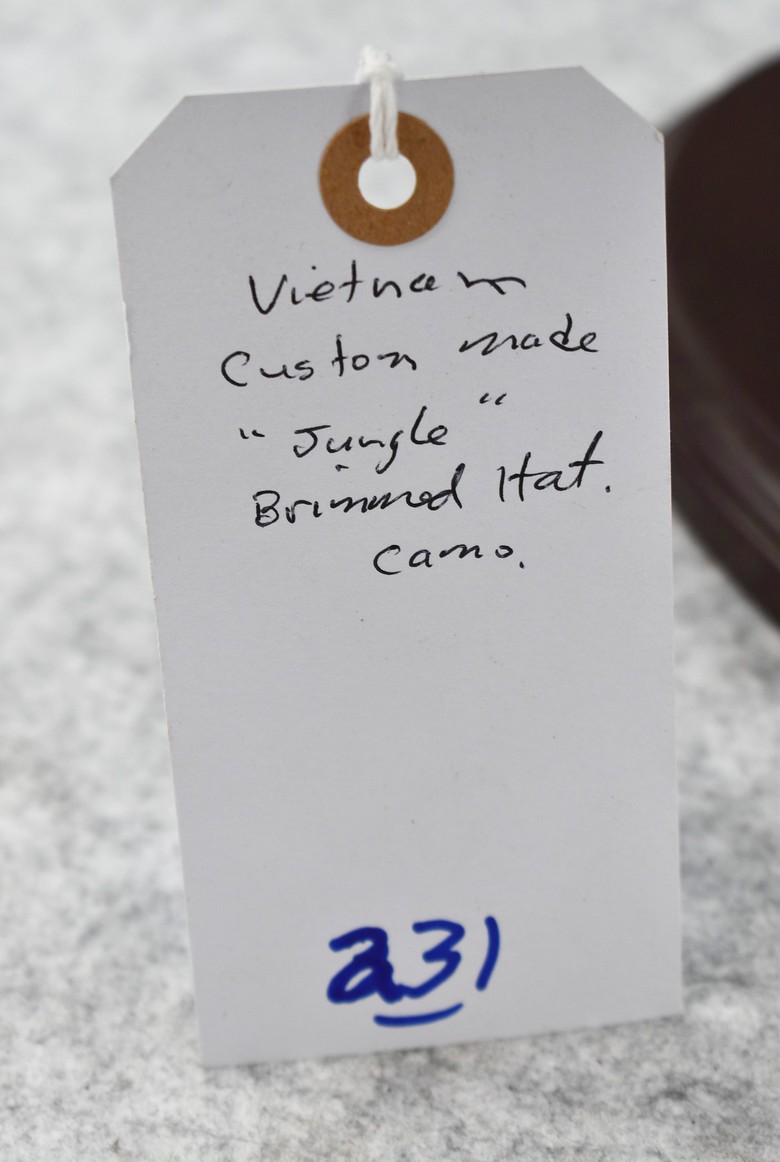 Vietnam
Custom made
"Jungle"
Brimmed Hat.
Camo.
231